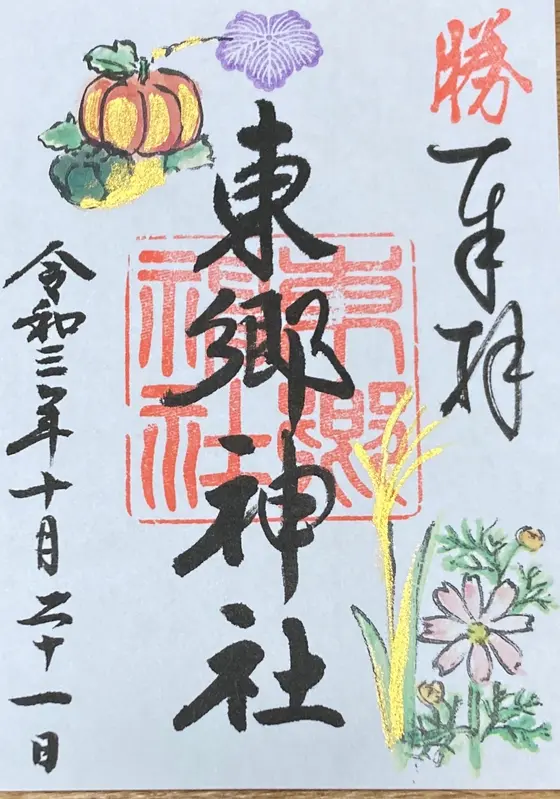 勝
奉拝
東郷神社
東郷
神社
令和三年十月二十一日